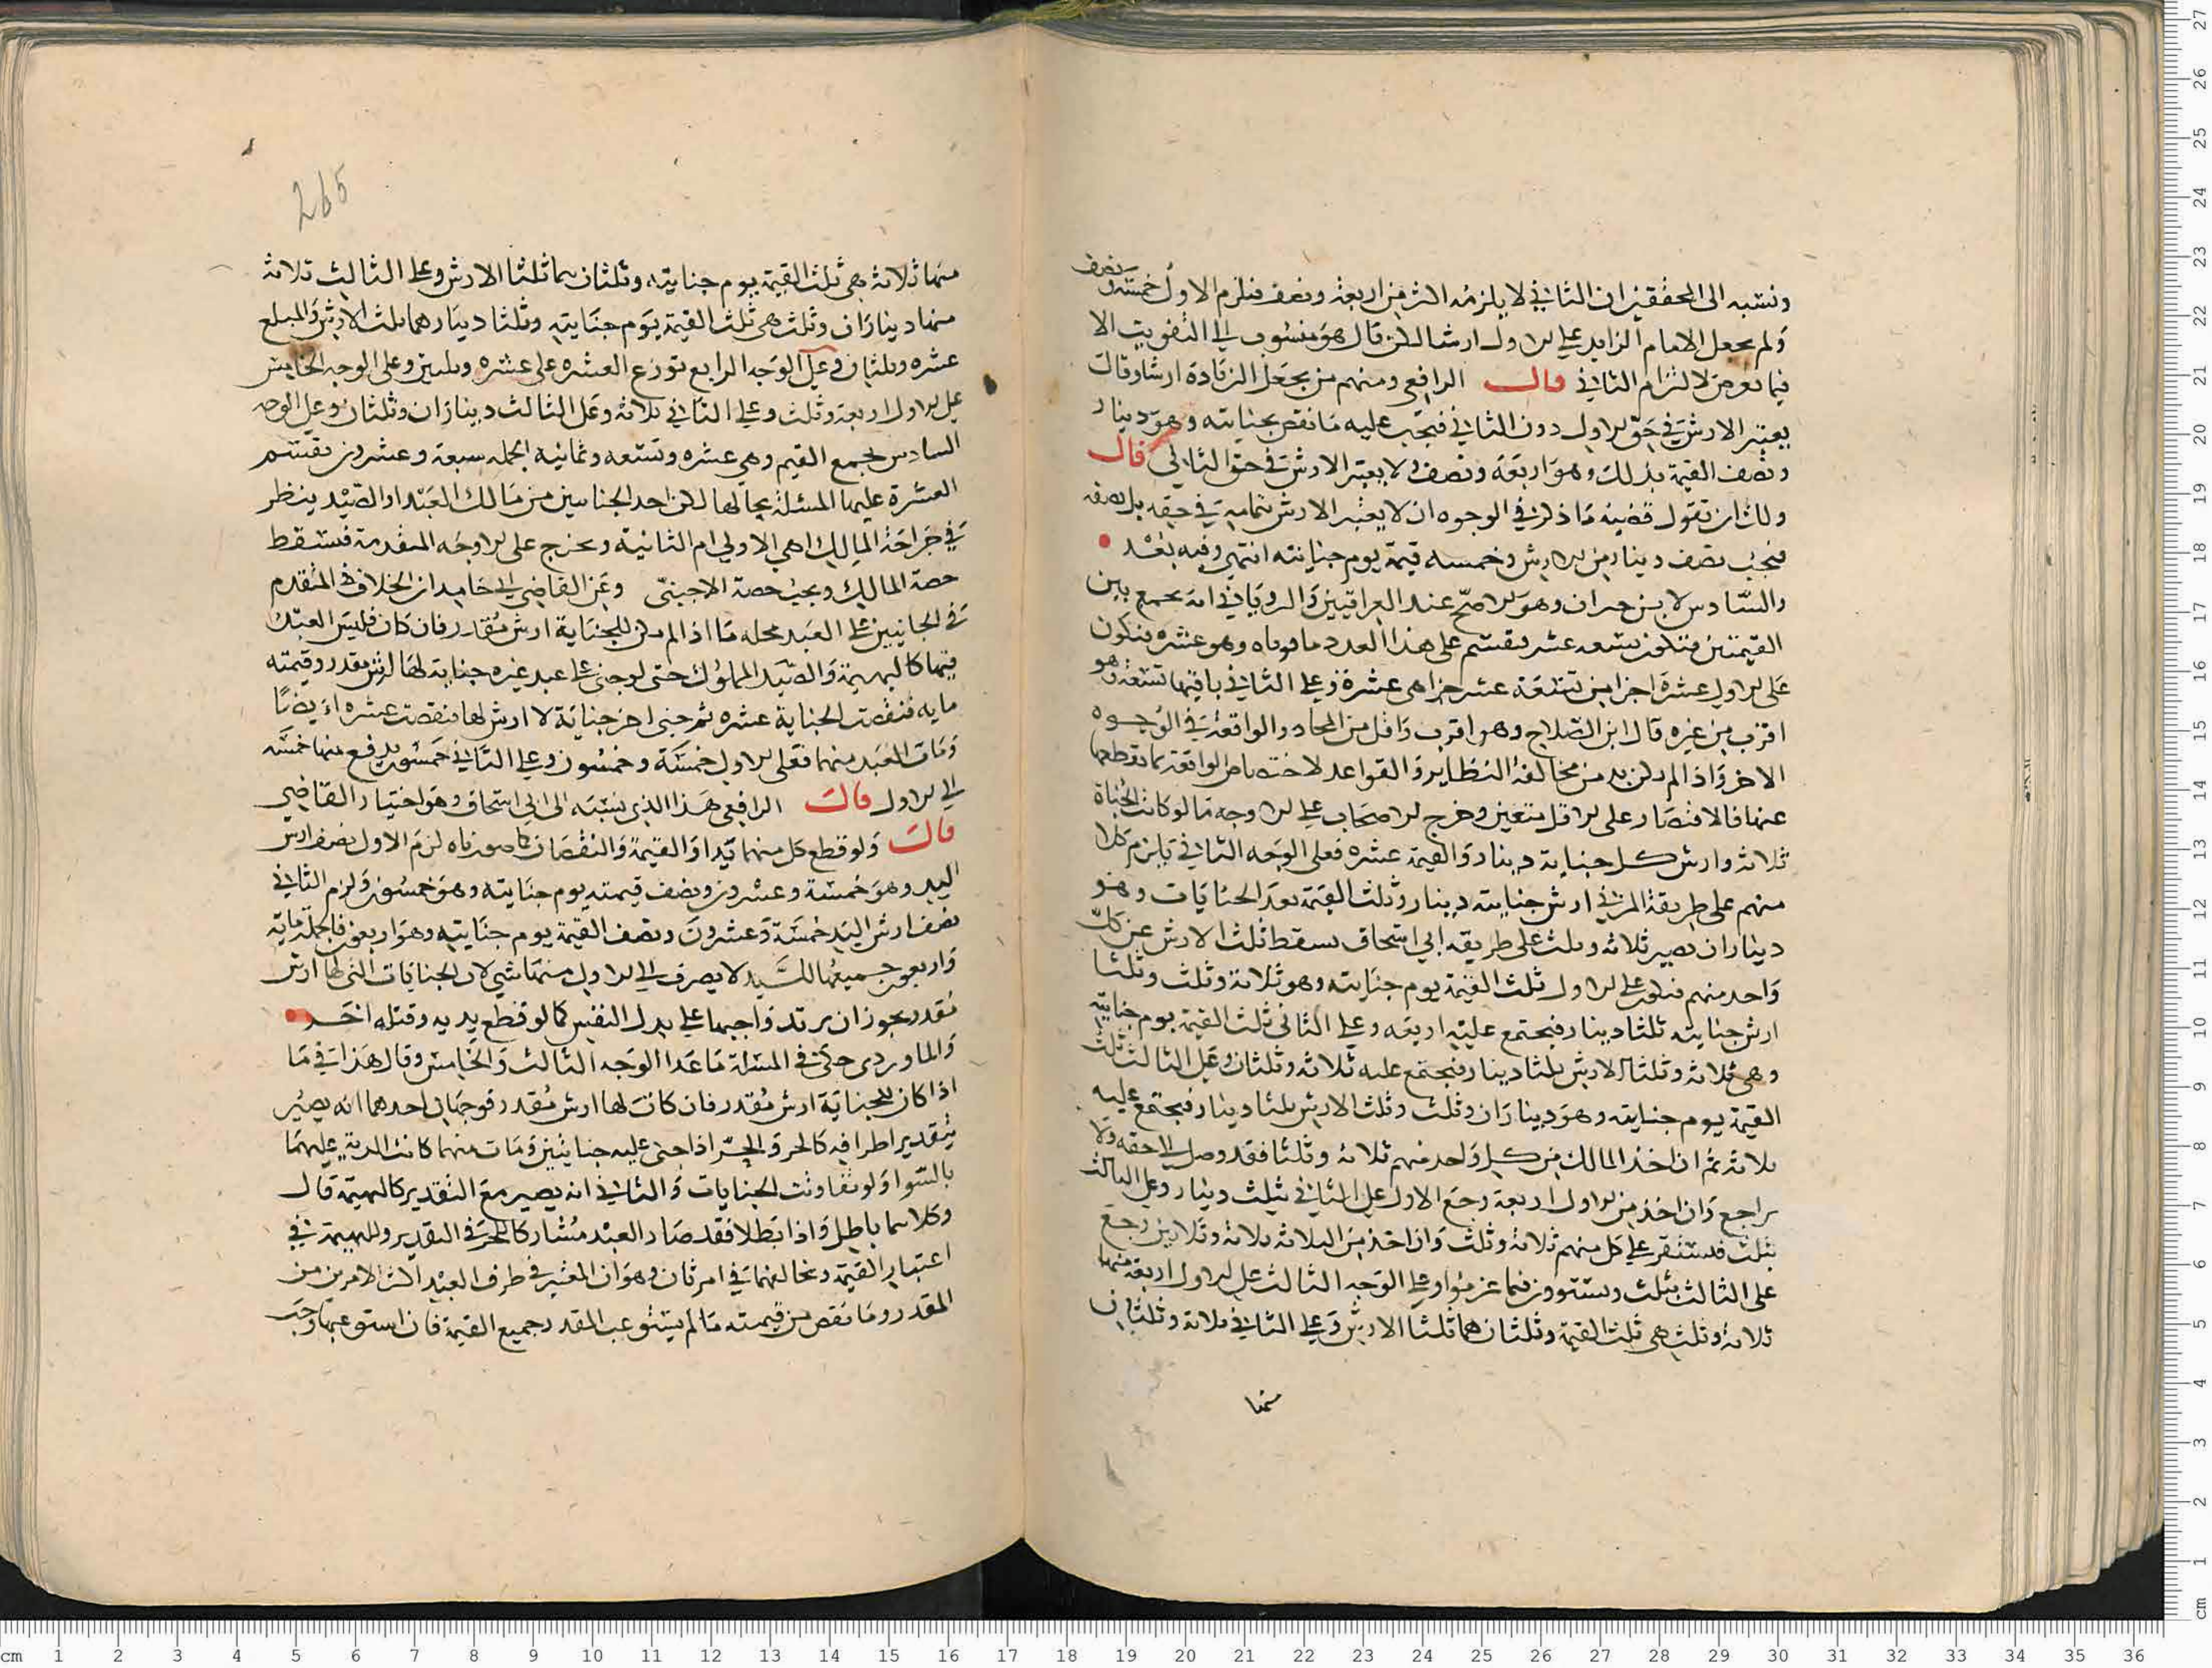 ونسبه الى المحققين ان الثاني لا يلزمه اكثر من اربعة ونصف فتلزم الاول خمسة ونصف
ولم يجعل الامام الزايد على الاول ارشا لكن قال هو منسوب الى التفويت الا
فيما تعرض لالتزام الثاني قال الرافعي ومنهم من يجعل الزيادة ارشا وقال
يعتبر الارش في حق الاول دون الثاني فتجب عليه ما نقص بجنايته وهو دينار
ونصف القيمة بعد ذلك وهو اربعة ونصف ولا يعتبر الارش في حق الثاني قال
ولك ان تقول قضية ما ذكر في الوجوه ان لا يعتبر الارش بتمامه في حقه بل نصفه
فتجب نصف دينار من الارش وخمسه قيمة يوم جنايته انتهى وفيه بعد
والسادس لابن خيران وهو الاصح عند العراقيين والروياني انه يجمع بين
القيمتين فتكون تسعه عشر فيقسم على هذا العدد ما فوتاه وهو عشره فيكون
على الاول عشرة اجزا من تسعة عشر جزا من عشرة وعلى الثاني باقيها تسعة وهو
اقرب من غيره قال ابن الصلاح وهو اقرب واقل من المحاذر الواقعة في الوجوه
الاخر واذا لم يكن بد من مخالفة النظاير والقواعد لاختصاص الواقعة بما يقطعها
عنها فالاقتصار على الاقل متعين وخرج الاصحاب على الاوجه ما لو كانت الجناة
ثلاثة وارش كل جناية دينار والقيمة عشره فعلى الوجه الثاني يلزم كلا
منهم على طريقة المزني ارش جنايته دينار وثلث القيمة بعد الجنايات وهو
ديناران تصير ثلاثه وثلث على طريقه ابي اسحاق يسقط ثلث الارش عن كل
واحد منهم فيكون على الاول ثلث القيمة يوم جنايته وهو ثلاثة وثلث وثلثا
ارش جنايته ثلثا دينار فيجتمع عليه اربعه وعلى الثاني ثلث القيمة يوم جنايته
وهي ثلاثة وثلثا الارش ثلثا دينار فيجتمع عليه ثلاثة وثلثان وعلى الثالث ثلث
القيمة يوم جنايته وهو ديناران وثلث وثلث الارش ثلثا دينار فيجتمع عليه
ثلاثة ثم ان اخذ المالك من كل واحد منهم ثلاثة وثلثا فقد وصل الى حقه ولا
تراجع وان اخذ من الاول اربعة رجع الاول على الثاني بثلث دينار وعلى الثالث
بثلث فيستقر على كل منهم ثلاثة وثلث وان اخذ من الثلاثة ثلاثة وثلاثين رجع
على الثالث بثلث ويستوون فيما غرموا وعلى الوجه الثالث على الاول اربعة منها
ثلاثة وثلث هي ثلث القيمة وثلثان هما ثلثا الارش وعلى الثاني ثلاثة وثلثان
منها
265
منها ثلاثة هي ثلث القيمة يوم جنايته وثلثان هما ثلثا الارش وعلى الثالث ثلاثة
منها ديناران وثلث هي ثلث القيمة يوم جنايته وثلثا دينار هما ثلث الارش والمبلغ
عشره وثلثان وعلى الوجه الرابع توزع العشره على عشره وثلثين وعلى الوجه الخامس
على الاول اربعة وثلث وعلى الثاني ثلاثة وعلى الثالث ديناران وثلثان وعلى الوجه
السادس تجمع القيم وهي عشره وتسعه وثمانيه الجمله سبعة وعشرون تقتسم
العشرة عليها المسئلة بحالها لكن احد الجنايتين من مالك العبد او الصيد ينظر
في جراحة المالك اهي الاولى ام الثانية ويخرج على الاوجه المتقدمة فتسقط
حصة المالك ويجب حصة الاجنبي وعن القاضي ابي حامد ان الخلاف المتقدم
في الجانيين على العبد محله ما اذا لم يكن للجناية ارش مقدر فان كان فليس العبد
فيها كالبهيمة والصيد المملوك حتى لو جنى على عبد غيره جناية لها ارش مقدر وقيمته
مايه فنقصت الجناية عشره ثم جنى اخر جناية لا ارش لها فنقصت عشره ايضا
ومات العبد منهما فعلى الاول خمسة وخمسون وعلى الثاني خمسون يدفع منها خمسه
الى الاول قال الرافعي هذا الذي نسبه الى ابي اسحاق وهو اختيار القاضي
قال ولو قطع كل منهما يدا والقيمة والنقصان كما صورناه لزم الاول نصف ارش
اليد وهو خمسة وعشرون ونصف قيمته يوم جنايته وهو خمسون ولزم الثاني
نصف ارش اليد خمسة وعشرون ونصف القيمة يوم جنايته وهو اربعون فالجملة ماية
واربعون جميعها للسيد لا يصرف الى الاول منها شي لان الجنايات التي لها ارش
مقدر يجوز ان يرتد واجبها على بدل النفس كما لو قطع يديه وقتله اخر
والماوردي حكى في المسئلة ما عدا الوجه الثالث والخامس وقال هذا في ما
اذا كان للجناية ارش مقدر فان كانت لها ارش مقدر فوجهان احدهما انه يصير
بتقدير اطرافه كالحر والحر اذا جنى عليه جنايتين ومات منهما كانت الدية عليهما
بالسوا ولو تفاوتت الجنايات والثاني انه يصير مع التقدير كالبهيمة قال
وكلاهما باطل واذا بطلا فقد صار العبد مشاركا للحر في التقدير وللبهيمة في
اعتبار القيمة ومخالفهما في امر ثان وهو ان المعتبر في طرف العبد اكثر الامرين من
المقدر وما نقص من قيمته ما لم يستوعب المقدر جميع القيمة فان استوعبها وجب